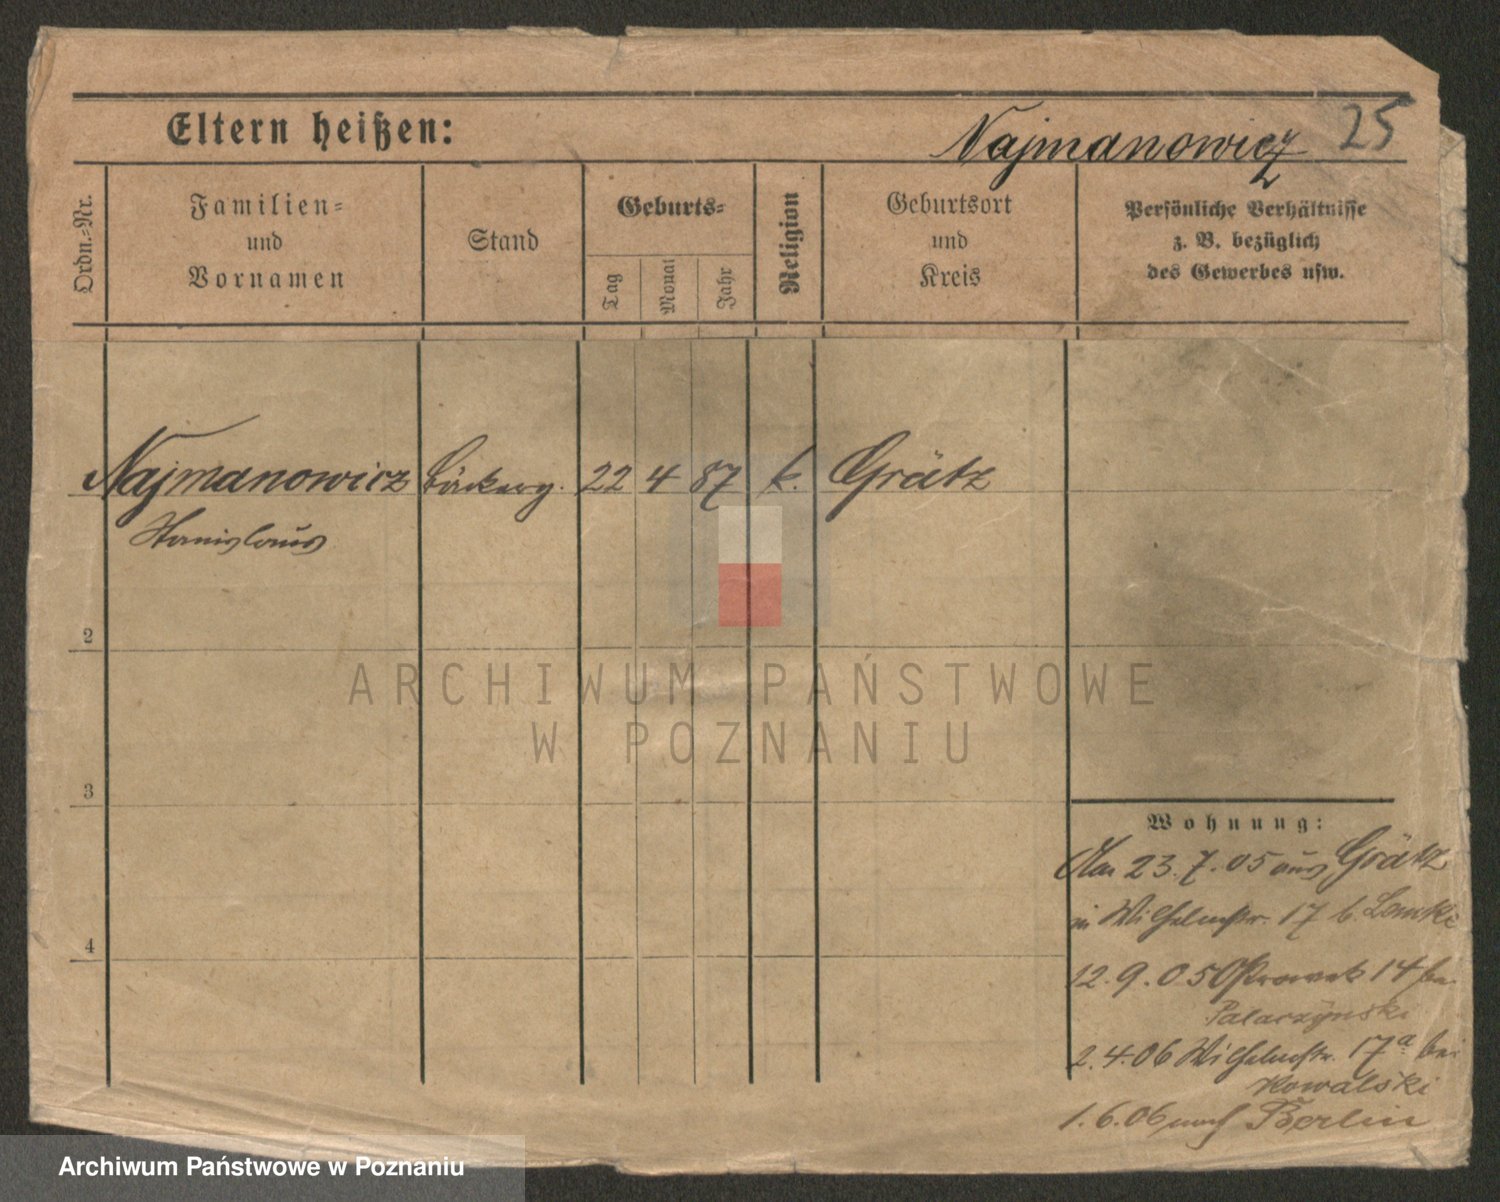 Eltern heißen:
Najmanowicz
25
Ordn.-Nr.
Familien-
und
Vornamen
Stand
Geburts-
Tag
Monat
Jahr
Religion
Geburtsort
und
Kreis
Persönliche Verhältnisse
z. B. bezüglich
des Gewerbes usw.
Najmanowicz Bäckerg. 22 4 87 k. Grätz
Stanislaus
2
ARCHIWUM PAŃSTWOWE
W POZNANIU
3
Wohnung:
23.7.05 aus Grätz
in Wilhelmstr. 17 b.
4
12.9.05 14 bei
Palarzÿnski
2.4.06 Wilhelmstr. 17a bei
Kowalski
1.6.06 nach Berlin
Archiwum Państwowe w Poznaniu